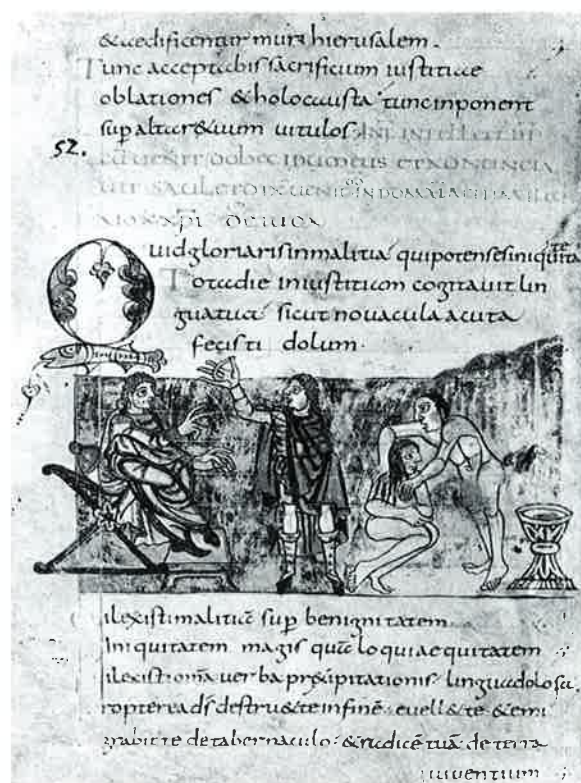 & aedificentur muri hierusalem.
Tunc acceptabis sacrificium iustitiae
oblationes & holocausta tunc inponent
sup altare tuum uitulos. IN INTELLECTU
52.
CU UENIT DOEC IDUMEUS ET ADNUNCIA
UIT SAUL ET DIX UENIT
Quid gloriaris in malitia qui potens es iniquitate
Tota die iniustitiam cogitauit lin
gua tua sicut nouacula acuta
fecisti dolum.
ilexisti malitia sup benignitatem
Iniquitatem magis qua loqui aequitatem
ilexisti oma uerba praecipitationis lingua dolosa
ropterea ds destru&te in fine euell&te &emi
grabit te de tabernaculo. & radice tua de terra
uiuentium